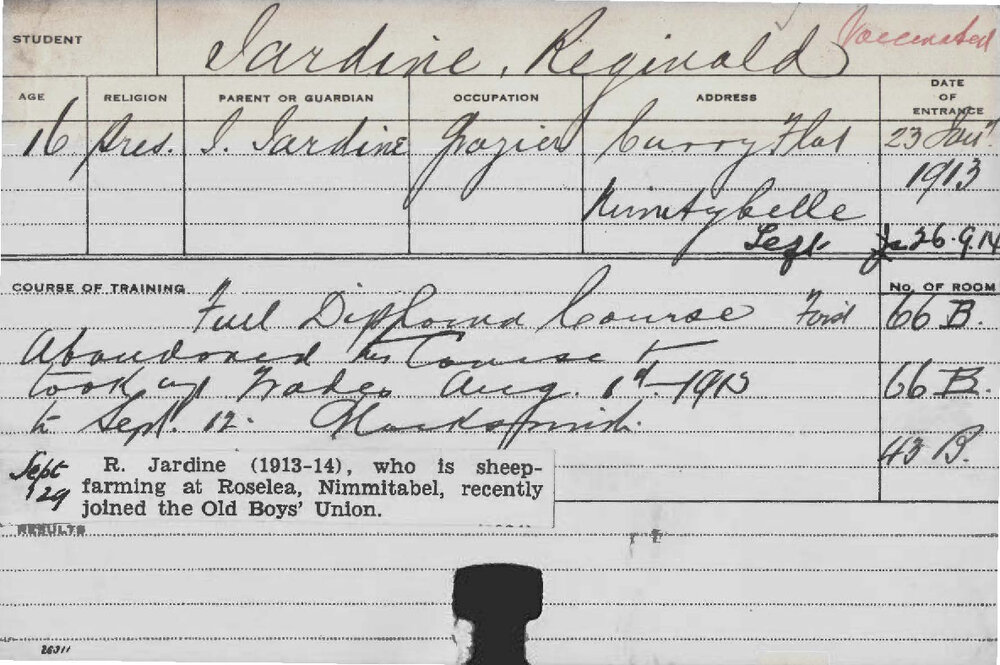 STUDENT Jardine, Reginald Vaccinated
AGE RELIGION PARENT OR GUARDIAN OCCUPATION ADDRESS DATE OF ENTRANCE
16 Pres. J. Jardine Grazier Curry Flat 23 Jany.
1913
Nimitybelle
Left 26.9.14
COURSE OF TRAINING No. OF ROOM
Full Diploma Course 66 B.
Abandoned his Course &
took up Trades Aug. 1st - 1913 66 B.
to Sept. 12. Blacksmith.
43 B.
Sept '29
R. Jardine (1913-14), who is sheep-
farming at Roselea, Nimmitabel, recently
joined the Old Boys' Union.
RESULTS
26311